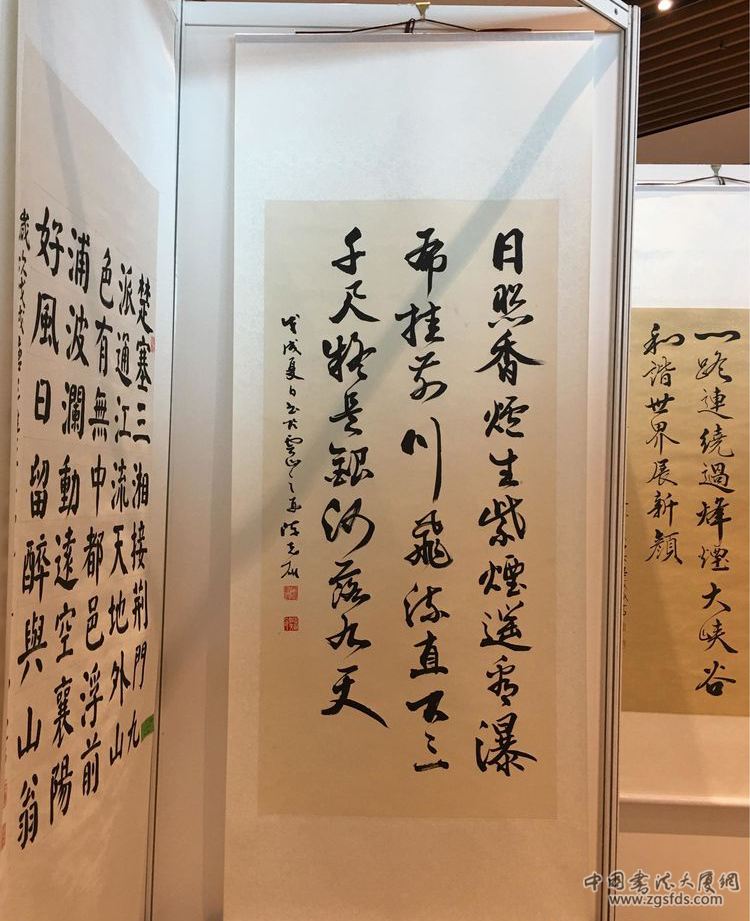 一路連繞過烽煙大峽谷
和諧世界展新顏
日照香炉生紫煙遥看瀑
布挂前川飛流直下三
千尺疑是銀河落九天
戊戌夏日書於雲山之
楚塞三湘接荆門九
派通江流天地外山
色有無中都邑浮前
浦波瀾動遠空襄陽
好風日留醉與山翁
歲次戊戌
中国書法大厦網
www.zgsfds.com